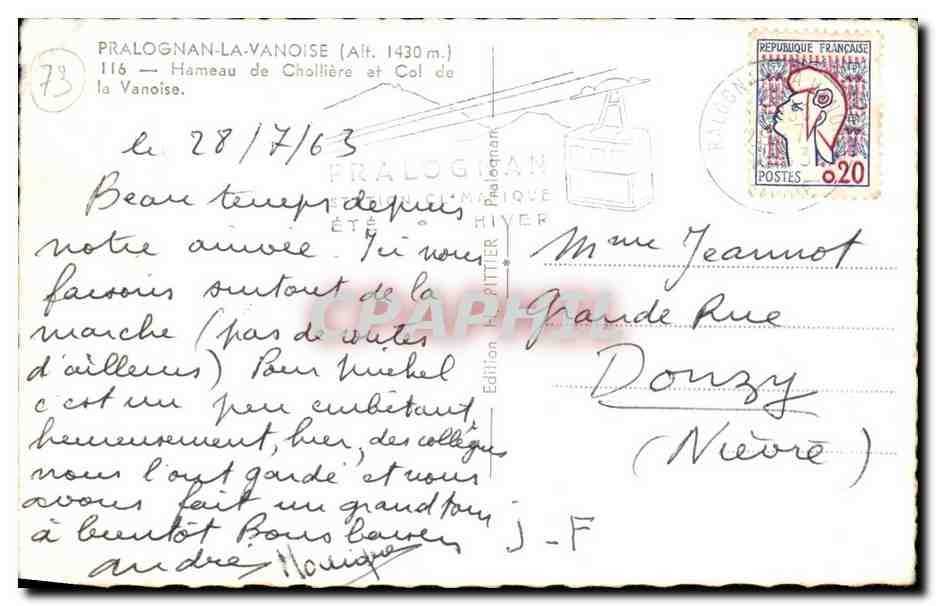 PRALOGNAN-LA-VANOISE (Alt. 1430 m.)
116 — Hameau de Chollière et Col de
la Vanoise.
73
le 28/7/63
Beau temps depuis
notre arrivée. Ici nous
faisons surtout de la
marche (pas de routes
d'ailleurs) Pour Michel
c'est un peu embêtant,
heureusement, hier, des collègues
nous l'ont gardé et nous
avons fait un grand tour
à bientôt Bons baisers
andré Monique
J-F
PRALOGNAN
STATION CLIMATIQUE
ÉTÉ HIVER
Edition PITTIER Pralognan
RALOGN
REPUBLIQUE FRANÇAISE
POSTES 0,20
Mme Jeannot
Grande Rue
Donzy
(Nièvre)
CPAPHIL